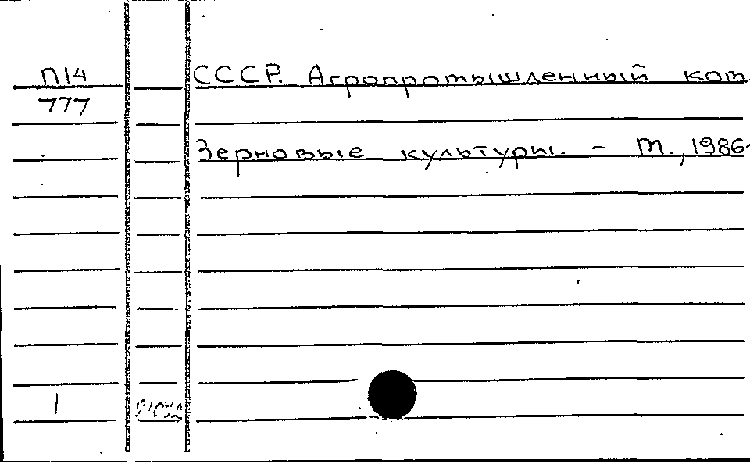 П14
777
СССР. Агропромышленный ком
Зерновые культуры. - М., 1986-
1